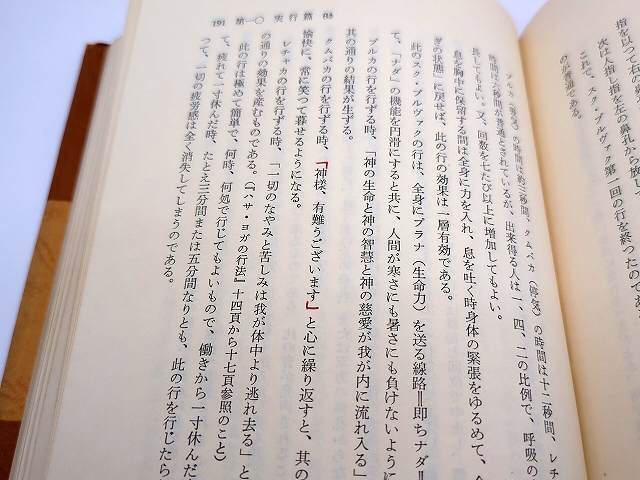 指を以つて右の鼻
次は人指し指を左の鼻孔から放
これで、スク・プルヴァク第一回の行を終つたの
が普通である。
プルカ（吸気）の時間は約三秒間、クムバカ（停気）の時間は十二秒間、レチ
時間は六秒間が普通とされているが、出来得る人は一、四、二の比例で、呼吸の
長してもよい。又、回数を七たび以上に増加してもよい。
息を胸中に保留する間は全身に力を入れ、息を吐く時身体の緊張をゆるめて、
ぎの状態」に戻せば、此の行の効果は一層有効である。
此のスク・プルヴァクの行は、全身にプラナ（生命力）を送る線路＝即ちナダ＝
て、「ナダ」の機能を円滑にすると共に、人間が寒さにも暑さにも負けないように
プルカの行を行ずる時、「神の生命と神の智慧と神の慈愛が我が内に流れ入る」
其の通りの結果が生ずる。
クムバカの行を行ずる時、「神様、有難うございます」と心に繰り返すと、其の
愉快に、常に笑つて暮せるようになる。
レチャカの行を行ずる時、「一切のなやみと苦しみは我が体中より逃れ去る」と
の通りの効果を産むものである。（「ハサ・ヨガの行法」十四頁から十七頁参照のこと）
此の行は極めて簡単で、何時、何処で行じてもよいもので、働きから一寸休んだ
て、疲れて一寸休んだ時、たとえ三分間または五分間なりとも、此の行を行じたら
つて、一切の疲労感は全く消失してしまうのである。
191 第一〇 実行篇